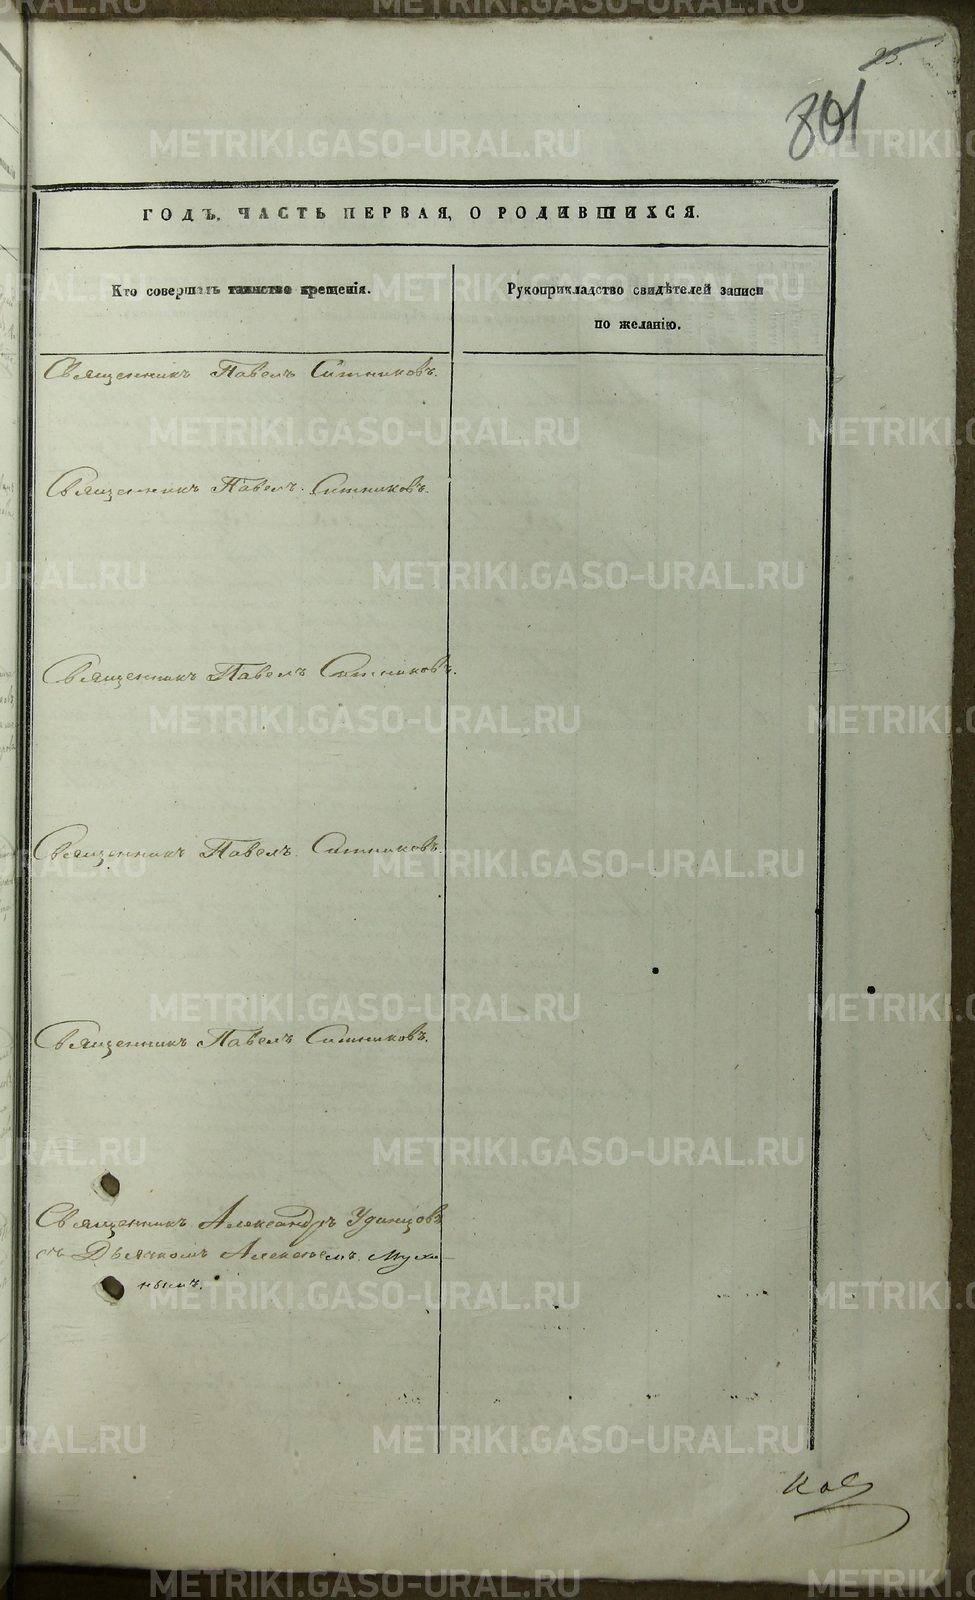 23.
801
ГОДЪ. ЧАСТЬ ПЕРВАЯ, О РОДИВШИХСЯ.
Кто совершалъ таинство крещенія.
Рукоприкладство свидѣтелей записи
по желанію.
Священникъ Павелъ Ситниковъ.
Священникъ Павелъ Ситниковъ.
Священникъ Павелъ Ситниковъ.
Священникъ Павелъ Ситниковъ.
Священникъ Павелъ Ситниковъ.
Священникъ Александръ Удинцовъ
съ Дьячкомъ Алексѣемъ Мухи-
нымъ.
METRIKI.GASO-URAL.RU